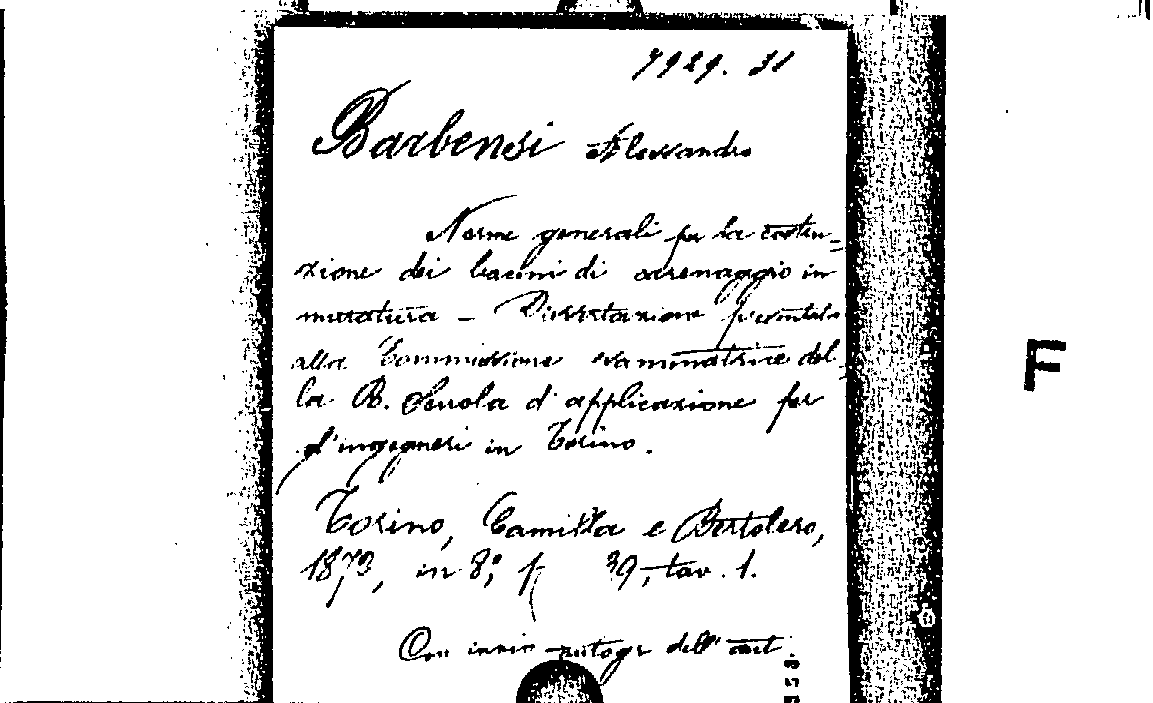 7929. 31
Barbensi Alessandro
Norme generali per la costru=
zione dei bacini di carenaggio in
muratura - Dissertazione presentata
alla Commissione esaminatrice del=
la R. Scuola d'applicazione per
gl'ingegneri in Torino.
Torino, Camilla e Bertolero,
1873, in 8°, p 39, tav. 1.
Con invio autogr dell'aut.
F